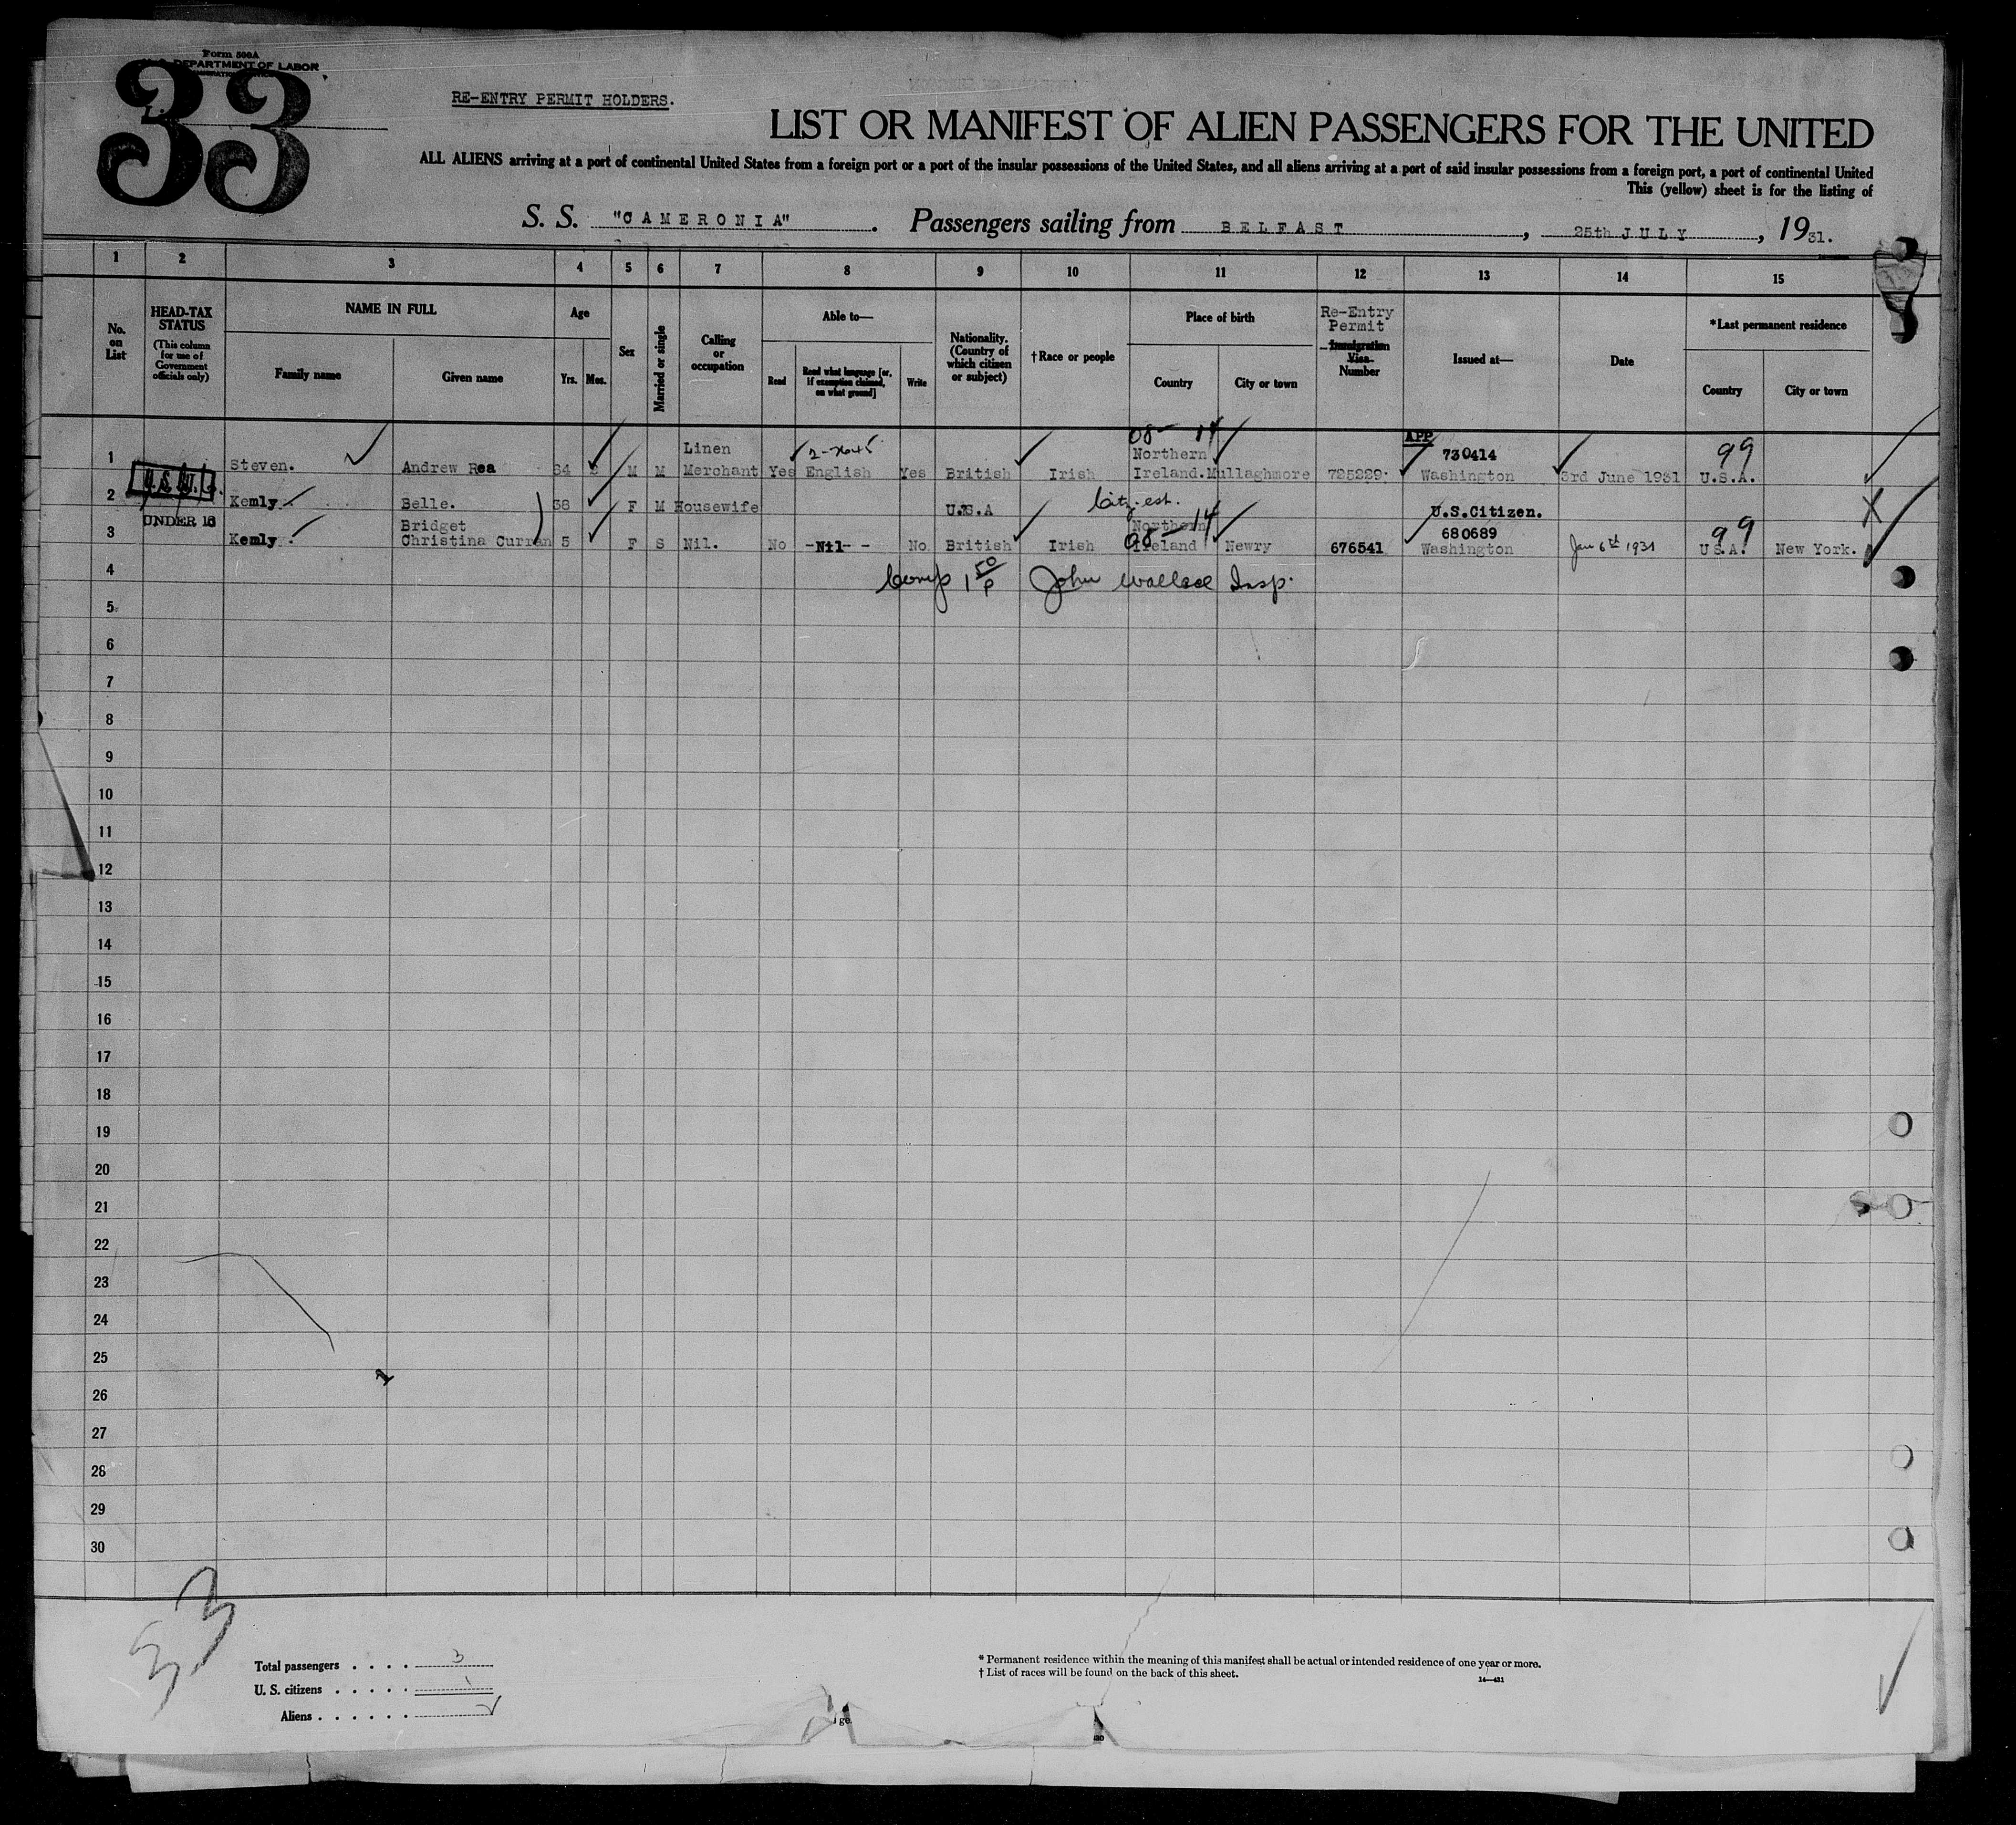 Form 500A
DEPARTMENT OF LABOR
33
RE-ENTRY PERMIT HOLDERS.
LIST OR MANIFEST OF ALIEN PASSENGERS FOR THE UNITED
ALL ALIENS arriving at a port of continental United States from a foreign port or a port of the insular possessions of the United States, and all aliens arriving at a port of said insular possessions from a foreign port, a port of continental United
This (yellow) sheet is for the listing of
S. S. "CAMERONIA". Passengers sailing from BELFAST, 25th JULY, 1931.
1 2 3 4 5 6 7 8 9 10 11 12 13 14 15
No. on List
HEAD-TAX STATUS (This column for use of Government officials only)
NAME IN FULL
Family name
Given name
Age
Yrs. Mos.
Sex
Married or single
Calling or occupation
Able to—
Read
Read what language [or, if exemption claimed, on what ground]
Write
Nationality. (Country of which citizen or subject)
†Race or people
Place of birth
Country
City or town
Re-Entry Permit
Immigration Visa Number
Issued at—
Date
*Last permanent residence
Country
City or town
08- 14 APP
Linen 2-7645 Northern 730414 99
1 Steven. Andrew Rea M M Merchant Yes English Yes British Irish Ireland. Mullaghmore 725229. Washington 3rd June 1931 U.S.A.
2 Kemly. Belle. 38 F M Housewife U.S.A Citz. est. U.S.Citizen. X
UNDER 16 Bridget Northern 08- 14 680689 99
3 Kemly. Christina Curran 5 F S Nil. No -Nil- - No British Irish Ireland Newry 676541 Washington Jan 6th 1931 U.S.A. New York.
4 Comp 1 50/P John Wallace Insp.
5
6
7
8
9
10
11
12
13
14
15
16
17
18
19
20
21
22
23
24
25
26
27
28
29
30
33
Total passengers . . . . 3
U. S. citizens . . . . . 1
Aliens . . . . . .
* Permanent residence within the meaning of this manifest shall be actual or intended residence of one year or more.
† List of races will be found on the back of this sheet.
14—431
ge.